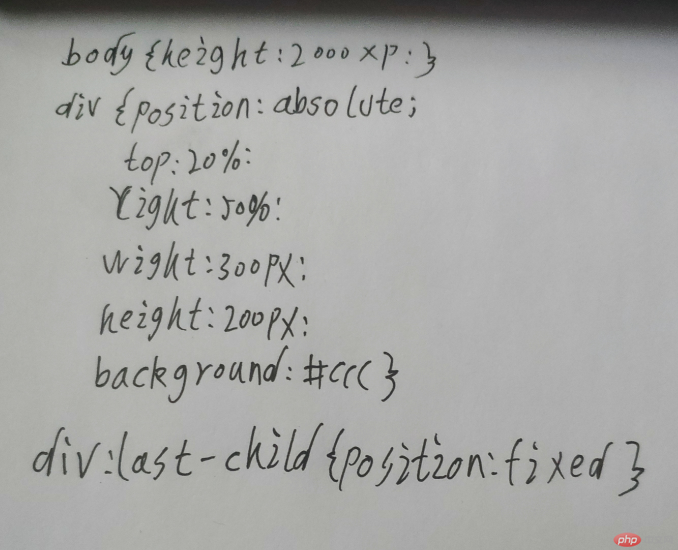 body{height:2000xp:}
div{position:absolute;
top:20%:
right:50%:
wight:300px:
height:200px:
background:#ccc}
div:last-child{position:fixed}
php